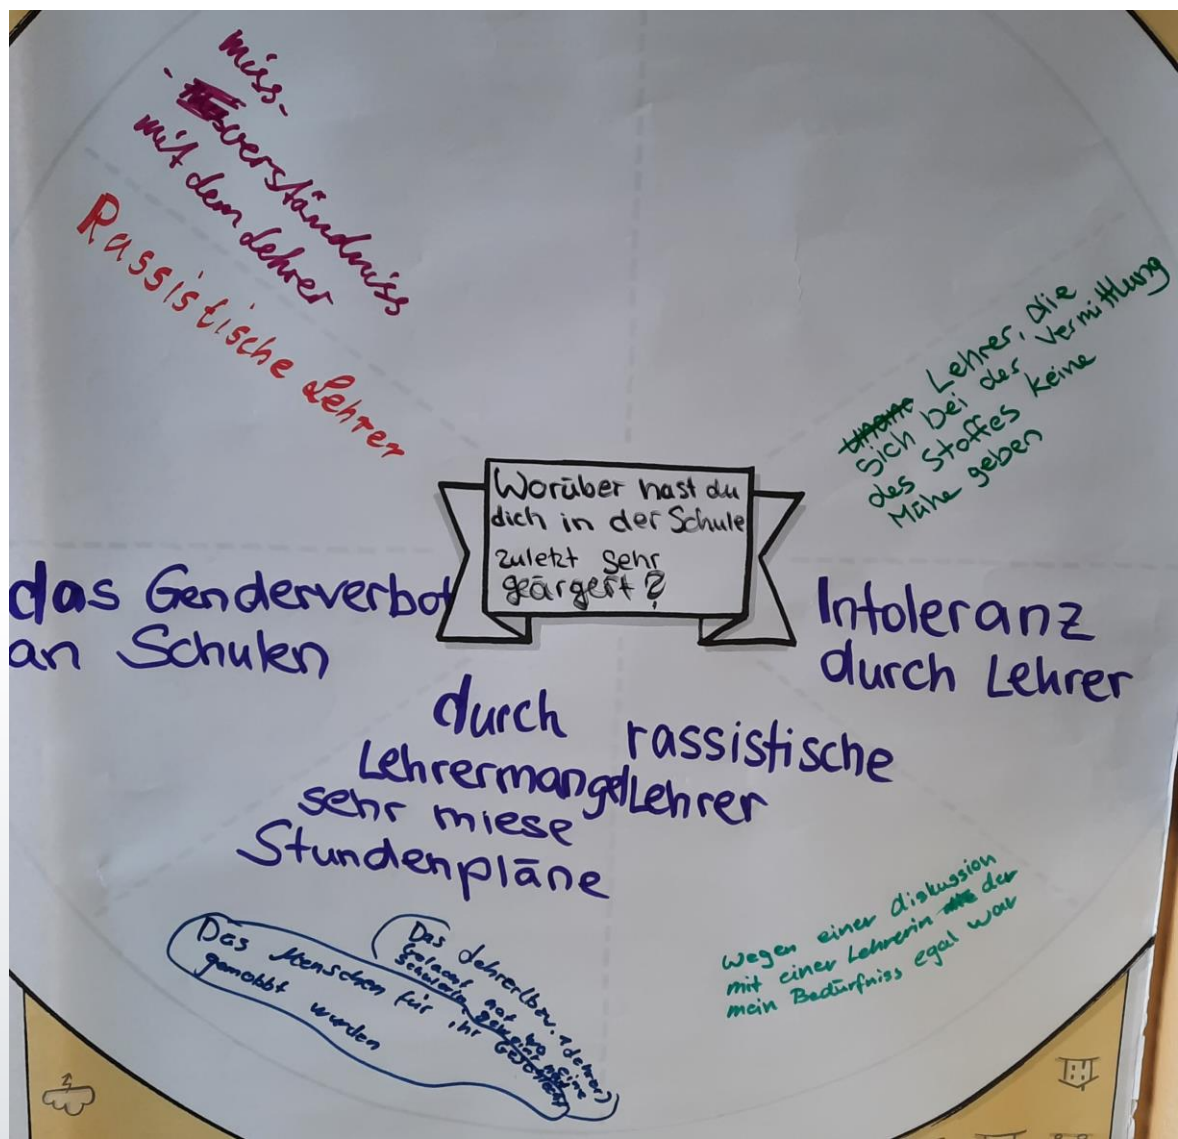 miss-
- verständniss
mit dem Lehrer
Rassistische Lehrer
Lehrer, die
sich bei der Vermittlung
des Stoffes keine
Mühe geben
Worüber hast du
dich in der Schule
zuletzt sehr
geärgert?
das Genderverbot
an Schulen
Intoleranz
durch Lehrer
durch
Lehrermangel
sehr miese
Stundenpläne
rassistische
Lehrer
Das Menschen für ihr Geschlecht
gemobbt wurden
Das Lehrer(bzw. 1 Lehrer)
Gelacht hat wo eine
Schülerin geweint hat
wegen einer diskussion
mit einer Lehrerin der
mein Bedürfniss egal war